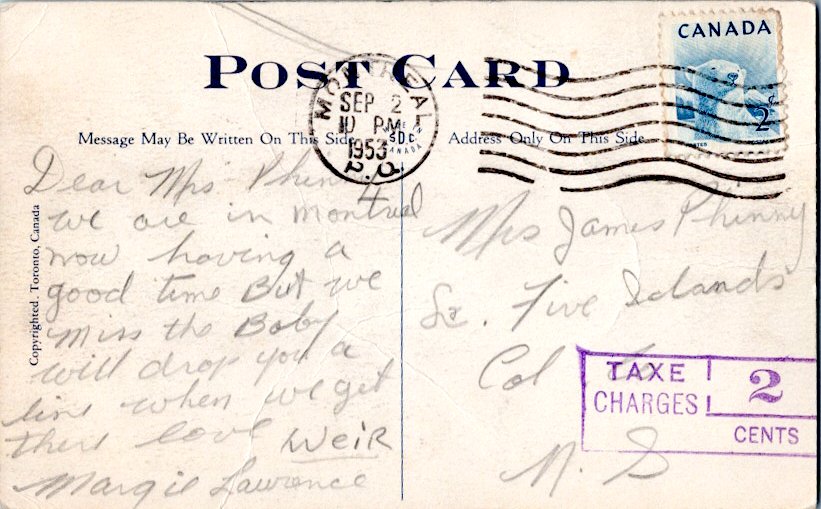 POST CARD
CANADA
2
MONTREAL
SEP 2
10 PM
1953
P.Q.
MADE IN
SDC
CANADA
Message May Be Written On This Side
Address Only On This Side
Copyrighted. Toronto, Canada
Dear Mrs Phinny
we are in montreal
now having a
good time But we
miss the Baby
will drop you a
line when we get
there love WEIR
Margie Lawrence
Mrs James Phinny
Five Islands
Col Co
N. S
TAXE
CHARGES
2
CENTS